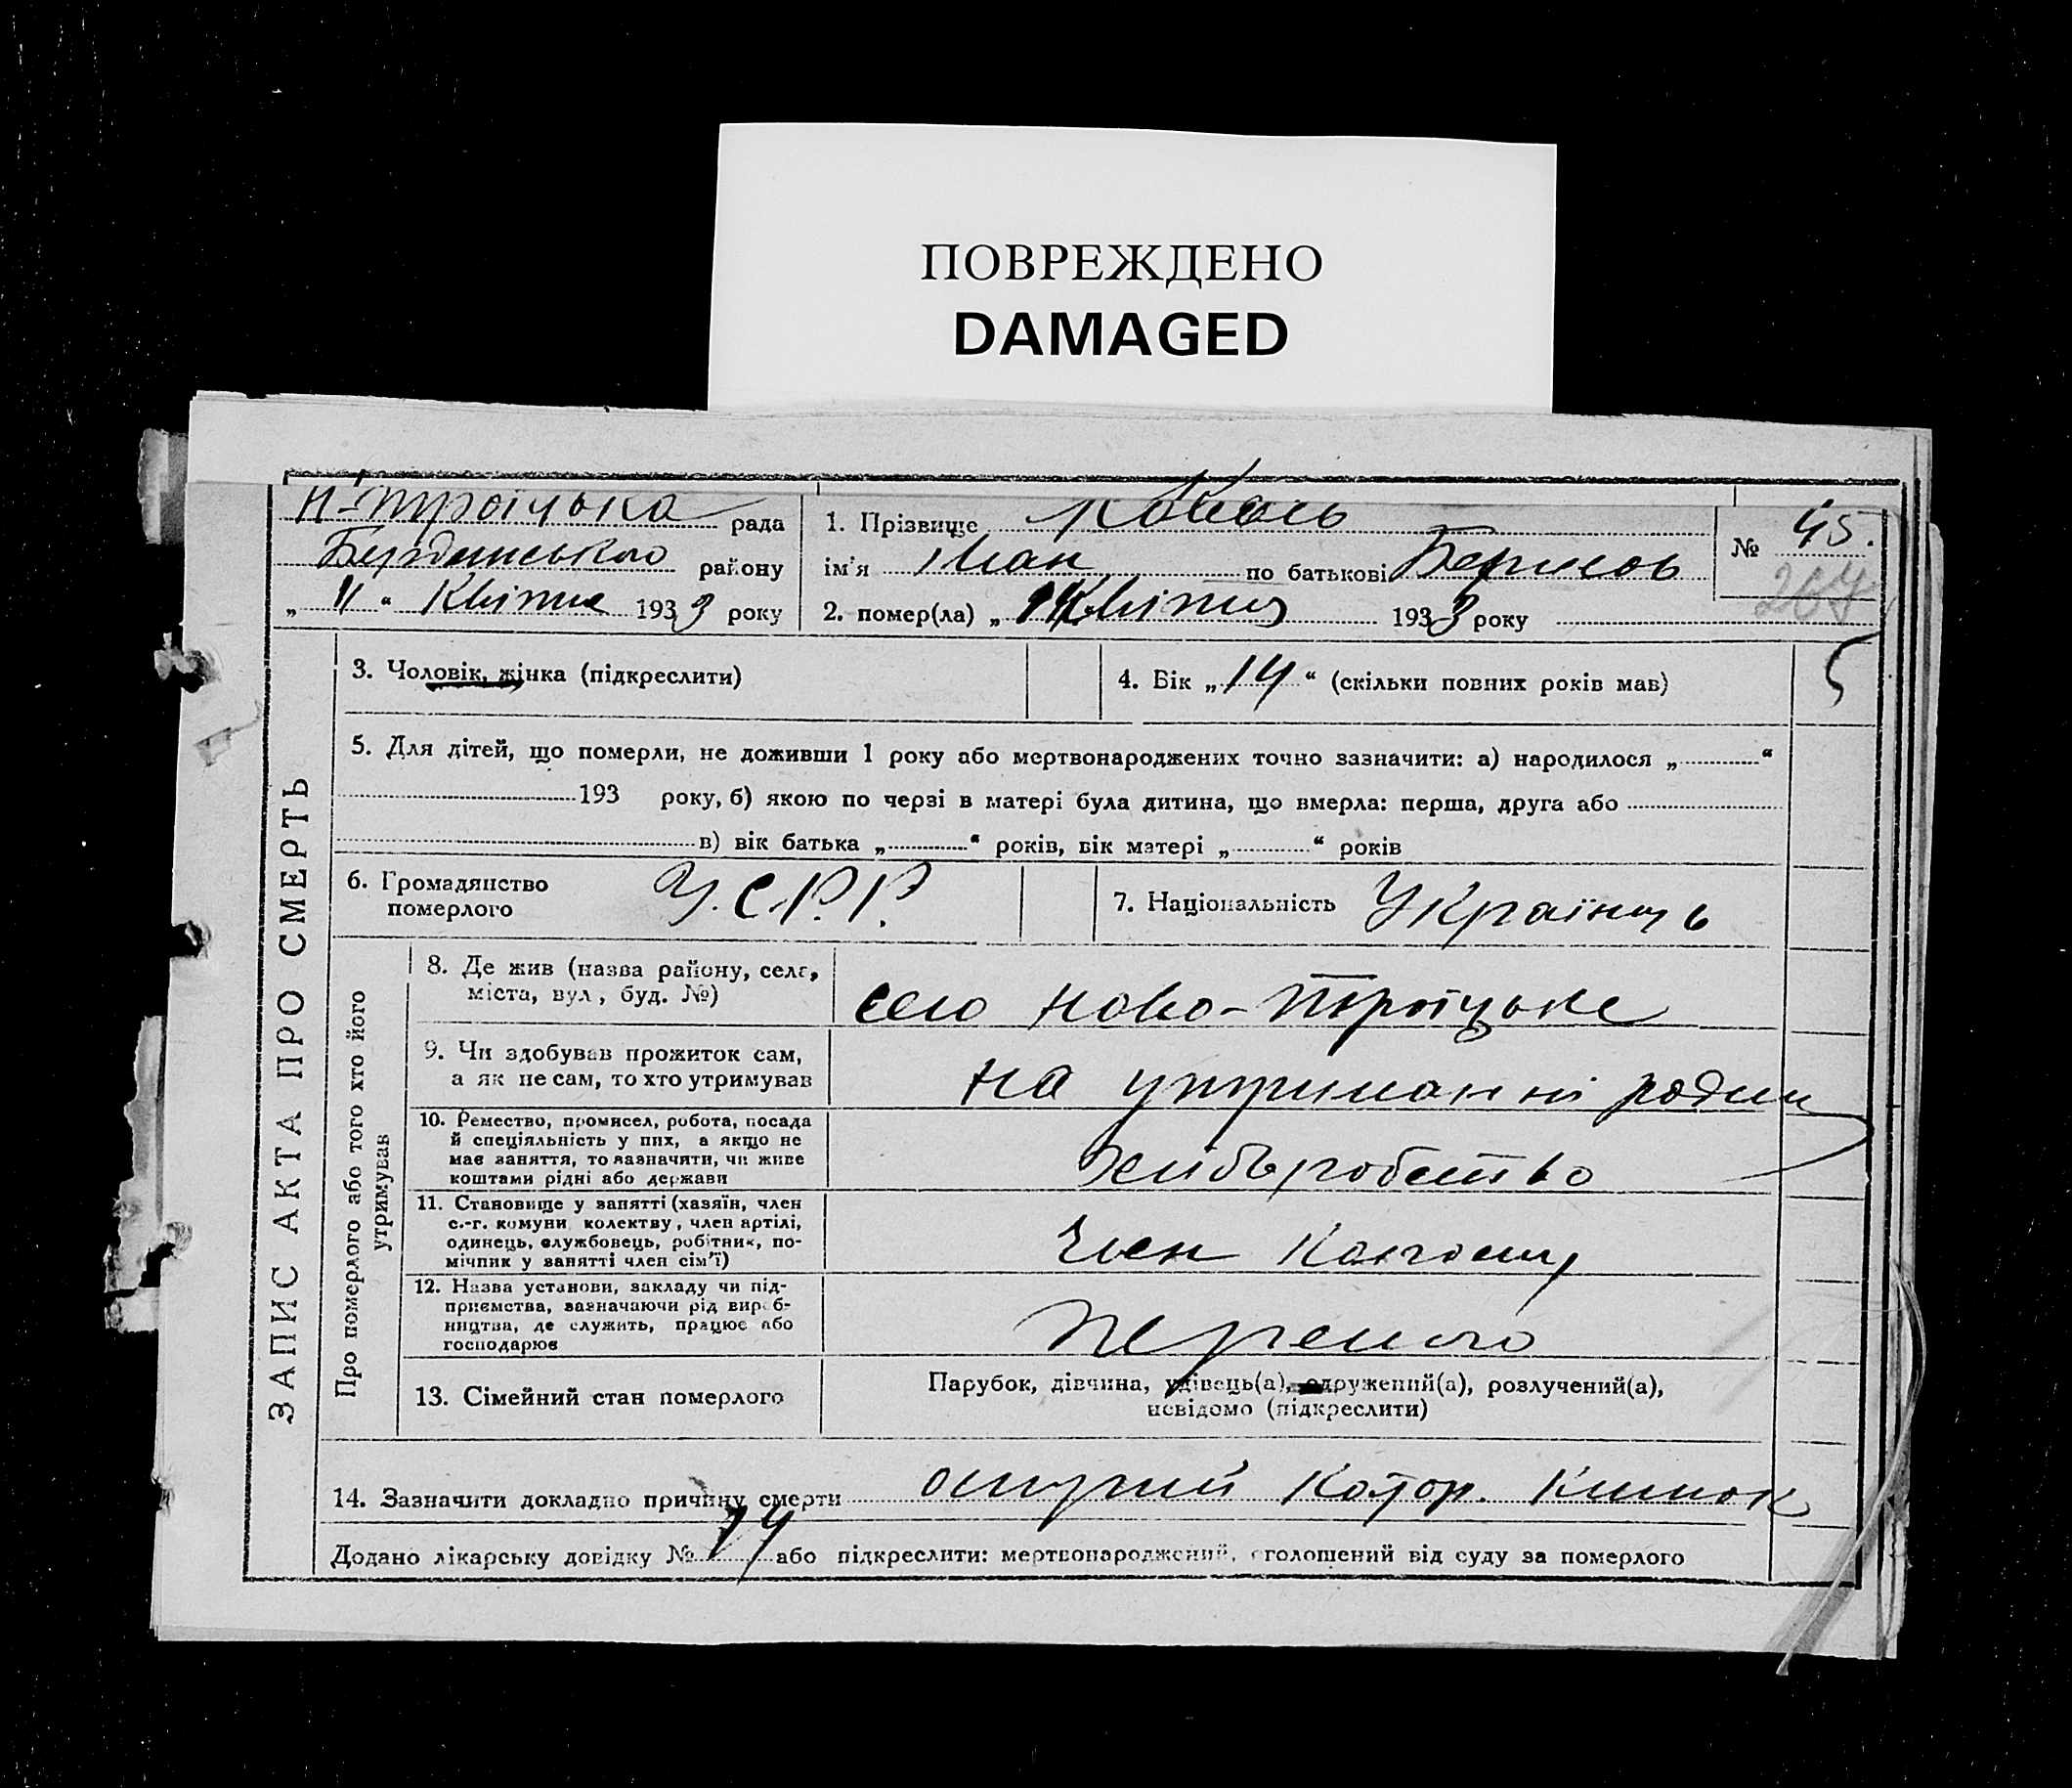 ПОВРЕЖДЕНО
DAMAGED
Н-Троїцька рада
Бердянського району
„ 11 “ Квітня 1933 року
1. Прізвище Коваль
ім'я Іван по батькові
2. помер(ла) „ Квітня 1933 року
№ 45.
ЗАПИС АКТА ПРО СМЕРТЬ
3. Чоловік, жінка (підкреслити)
4. Вік „ 14 “ (скільки повних років мав)
5
5. Для дітей, що померли, не доживши 1 року або мертвонароджених точно зазначити: а) народилося „ “
193 року, б) якою по черзі в матері була дитина, що вмерла: перша, друга або
в) вік батька „ “ років, вік матері „ “ років
6. Громадянство
померлого
У.С.Р.Р.
7. Національність Українець
Про померлого або того хто його
утримував
8. Де жив (назва району, села,
міста, вул, буд. №)
село Ново-Троїцьке
9. Чи здобував прожиток сам,
а як не сам, то хто утримував
на утриманні родини
10. Ремество, промисел, робота, посада
й спеціяльність у них, а якщо не
має заняття, то зазначити, чи живе
коштами рідні або держави
11. Становище у занятті (хазяїн, член
с.-г. комуни колектву, член артілі,
одинець, службовець, робітник, по-
мічник у занятті член сім'ї)
Член Колгоспу
12. Назва установи, закладу чи під-
приємства, зазначаючи рід вироб-
ництва, де служить, працює або
господарює
13. Сімейний стан померлого
Парубок, дівчина, удівець(а), одружений(а), розлучений(а),
невідомо (підкреслити)
14. Зазначити докладно причину смерти Катар. Кишок
Додано лікарську довідку № або підкреслити: мертвонароджений, оголошений від суду за померлого